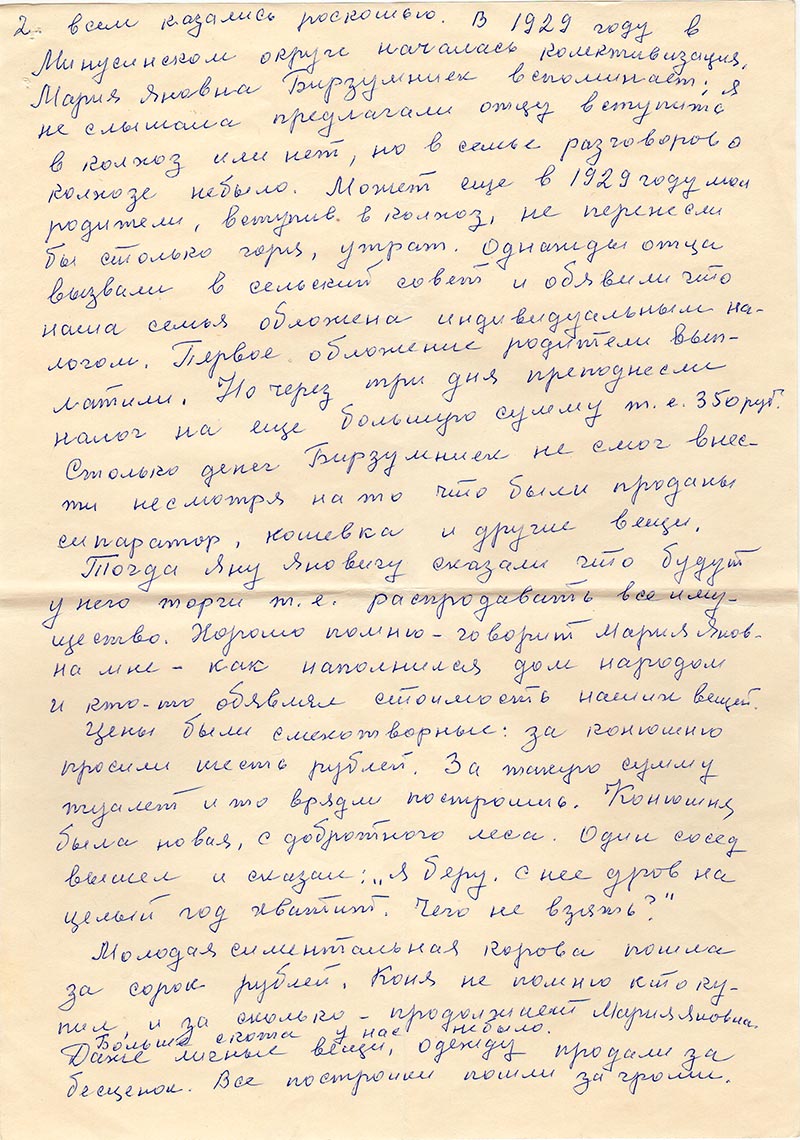 2. всем казались роскошью. В 1929 году в
Минусинском округе началась колективизация.
Мария Яновна Бирзумниек вспоминает: „я
не слышала предлагали отцу вступить
в колхоз или нет, но в семье разговоров о
колхозе небыло. Может еще в 1929 году мои
родители, вступив в колхоз, не перенесли
бы столько горя, утрат. Однажды отца
вызвали в сельский совет и обявили что
наша семья обложена индивидуальным на-
логом. Первое обложение родители вып-
латили. Но через три дня преподнесли
налог на еще большую сумму т.е. 350 руб.
Столько денег Бирзумниек не смог внес-
ти несмотря на то что были проданы
сипаратор, кошевка и другие вещи.
Тогда Яну Яновичу сказали что будут
у него торги т.е. распродавать все иму-
щество. Хорошо помню - говорит Мария Янов-
на мне - как наполнился дом народом
и кто-то обявлял стоимость наших вещей.
Цены были смехотворные: за конюшню
просили шесть рублей. За такую сумму
туалет и то врядли построишь. Конюшня
была новая, с добротного леса. Один сосед
вышел и сказал: „я беру. с нее дров на
целый год хватит. Чего не взять?"
Молодая симентальная корова пошла
за сорок рублей. Коня не помню кто ку-
пил и за сколько - продолжает Мария Яновна.
Больше скота у нас небыло.
Даже личные вещи, одежду продали за
бесценок. Все постройки пошли за гроши.